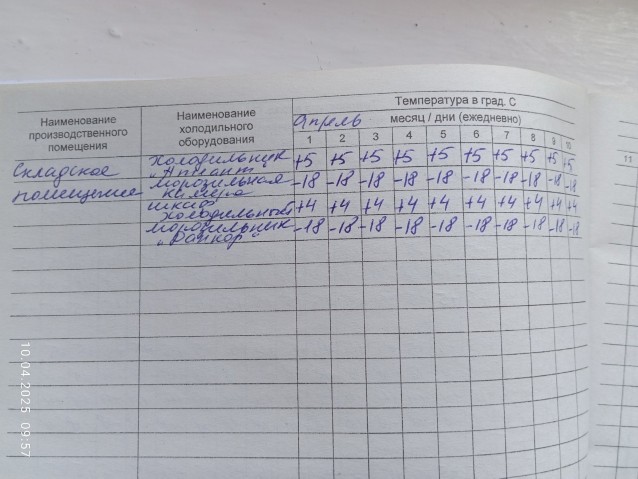 Температура в град. С
Наименование производственного помещения
Наименование холодильного оборудования
Апрель месяц / дни (ежедневно)
1 2 3 4 5 6 7 8 9 10
11
Складское помещение
холодильник "Атлант" +5 +5 +5 +5 +5 +5 +5 +5 +5 +5
морозильная камера -18 -18 -18 -18 -18 -18 -18 -18 -18 -18
шкаф холодильный +4 +4 +4 +4 +4 +4 +4 +4 +4 +4
морозильник -18 -18 -18 -18 -18 -18 -18 -18 -18 -18
10.04.2025 09:57